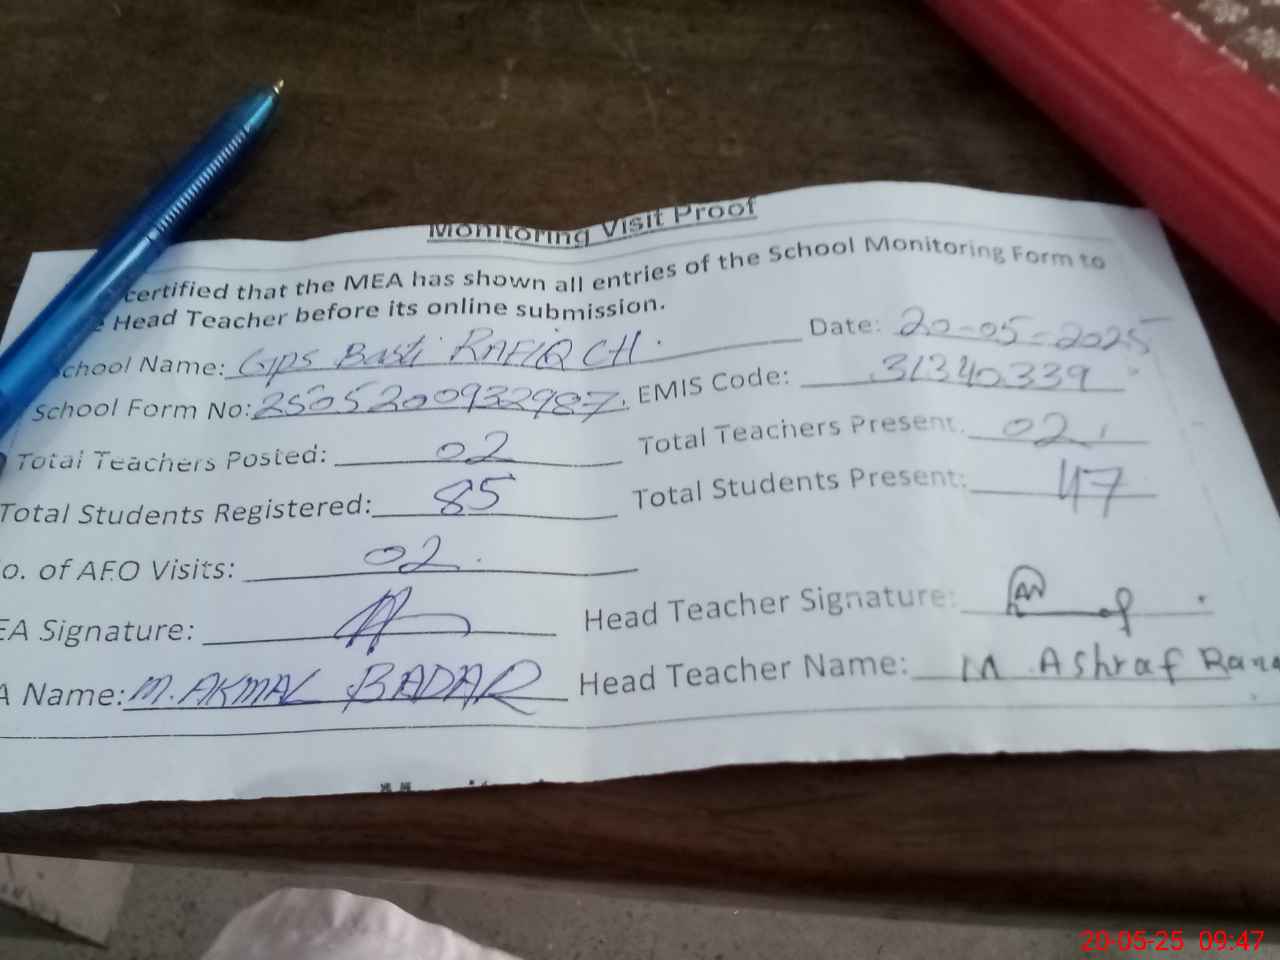 Monitoring Visit Proof
certified that the MEA has shown all entries of the School Monitoring Form to
Head Teacher before its online submission.
School Name: Gps Basti RAFIQ CH. Date: 20-05-2025
School Form No: 2505200932987. EMIS Code: 31340339
Total Teachers Posted: 02 Total Teachers Present: 02
Total Students Registered: 85 Total Students Present: 47
o. of AEO Visits: 02
EA Signature: Head Teacher Signature:
A Name: M. AKMAL BADAR Head Teacher Name: M. Ashraf Rana
20-05-25 09:47